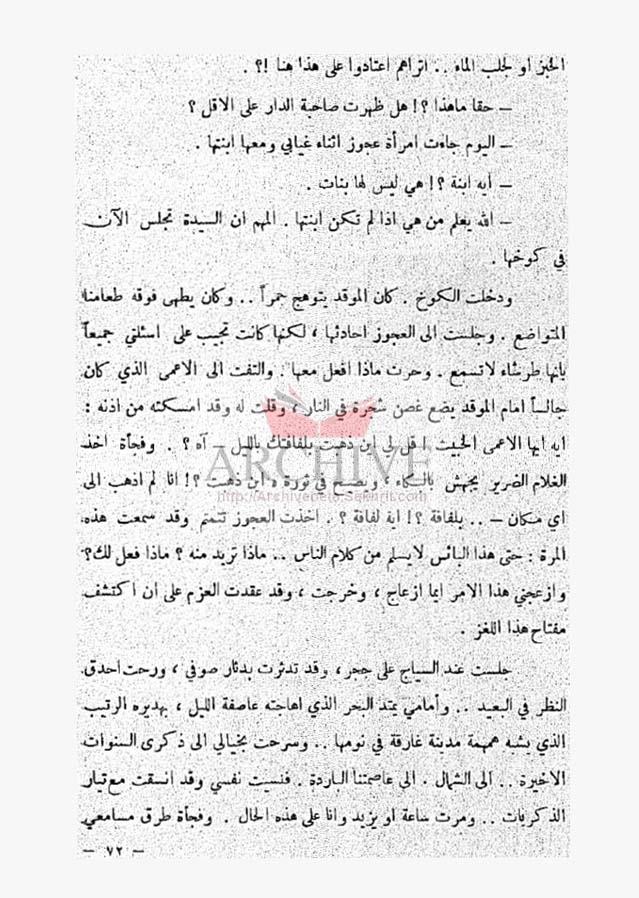 الخبز او لجلب الماء .. اتراهم اعتادوا على هذا هنا !؟ .
— حقا ماهذا ؟! هل ظهرت صاحبة الدار على الاقل ؟
— اليوم جاءت امرأة عجوز اثناء غيابي ومعها ابنتها .
— أيه ابنة ؟! هي ليس لها بنات .
— الله يعلم من هي اذا لم تكن ابنتها . المهم ان السيدة تجلس الآن
في كوخها .
ودخلت الكوخ . كان الموقد يتوهج جمراً .. وكان يطهى فوقه طعامنا
المتواضع . وجلست الى العجوز احادثها ، لكنها كانت تجيب على اسئلتي جميعاً
بانها طرشاء لاتسمع . وحرت ماذا افعل معها . والتفت الى الاعمى الذي كان
جالساً امام الموقد يضع غصن شجرة في النار ، وقلت له وقد امسكته من اذنه :
ايه ايها الاعمى الخبيث ! قل لي اين ذهبت بلفافتك بالليل — آه ؟ . وفجأة اخذ
ARCHIVE
الغلام الضرير يجهش بالبكاء ، ويصيح في ثورة : اين ذهبت ؟! انا لم اذهب الى
http://Archivebeta.Sakhrit.com
اي مكان — .. بلفافة ؟! اية لفافة ؟ . اخذت العجوز تتمتم وقد سمعت هذه
المرة : حتى هذا البائس لايسلم من كلام الناس .. ماذا تريد منه ؟ ماذا فعل لك؟
وازعجني هذا الامر ايما ازعاج ، وخرجت ، وقد عقدت العزم على ان اكتشف
مفتاح هذا اللغز .
جلست عند السياج على حجر ، وقد تدثرت بدثار صوفي ، ورحت احدق
النظر في البعيد .. وأمامي يمتد البحر الذي اهاجته عاصفة الليل ، بهديره الرتيب
الذي يشبه همهمة مدينة غارقة في نومها .. وسرحت بخيالي الى ذكرى السنوات
الاخيرة .. الى الشمال . الى عاصمتنا الباردة . فنسيت نفسي وقد انسقت مع تيار
الذكريات .. ومرت ساعة او يزيد وانا على هذه الحال . وفجأة طرق مسامعي
— ٧٢ —